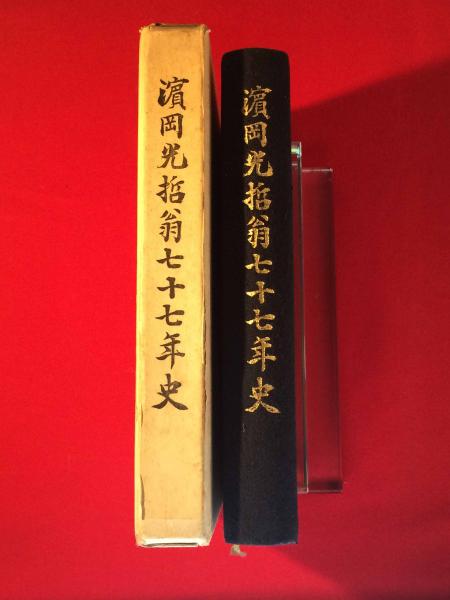 濵岡光哲翁七十七年史
濵岡光哲翁七十七年史